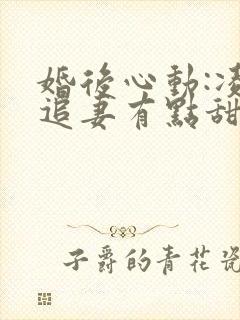 婚後心動:凌
追妻有點甜
子爵的青花瓷